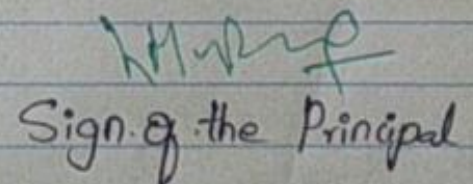 Sign. of the Principal